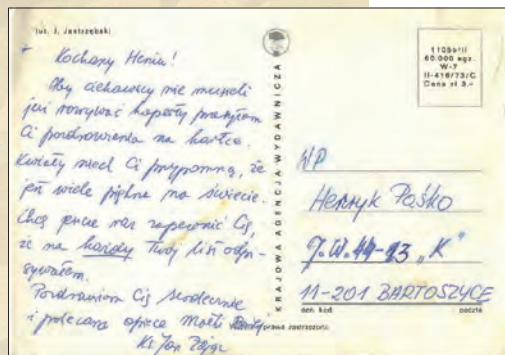 fot. J. Jastrzębski
+
Kochany Heniu!
Aby ciekawscy nie musieli
już rozrywać koperty przesyłam
Ci pozdrowienia na kartce.
Kwiaty niech Ci przypomną, że
jest wiele piękna na świecie.
Chcę jeszcze raz zapewnić Cię,
że na każdy Twój list odpi-
sywałem.
Pozdrawiam Cię serdecznie
i polecam opiece Matki
Ks Jan Zając
KRAJOWA AGENCJA WYDAWNICZA
Wszelkie prawa zastrzeżone
60.000 egz.
W-7
II-416/73/C
Cena zł 3.-
WP
Henryk Paśko
J.W. 44-13 „K"
11-201 BARTOSZYCE
ozn. kod
poczta